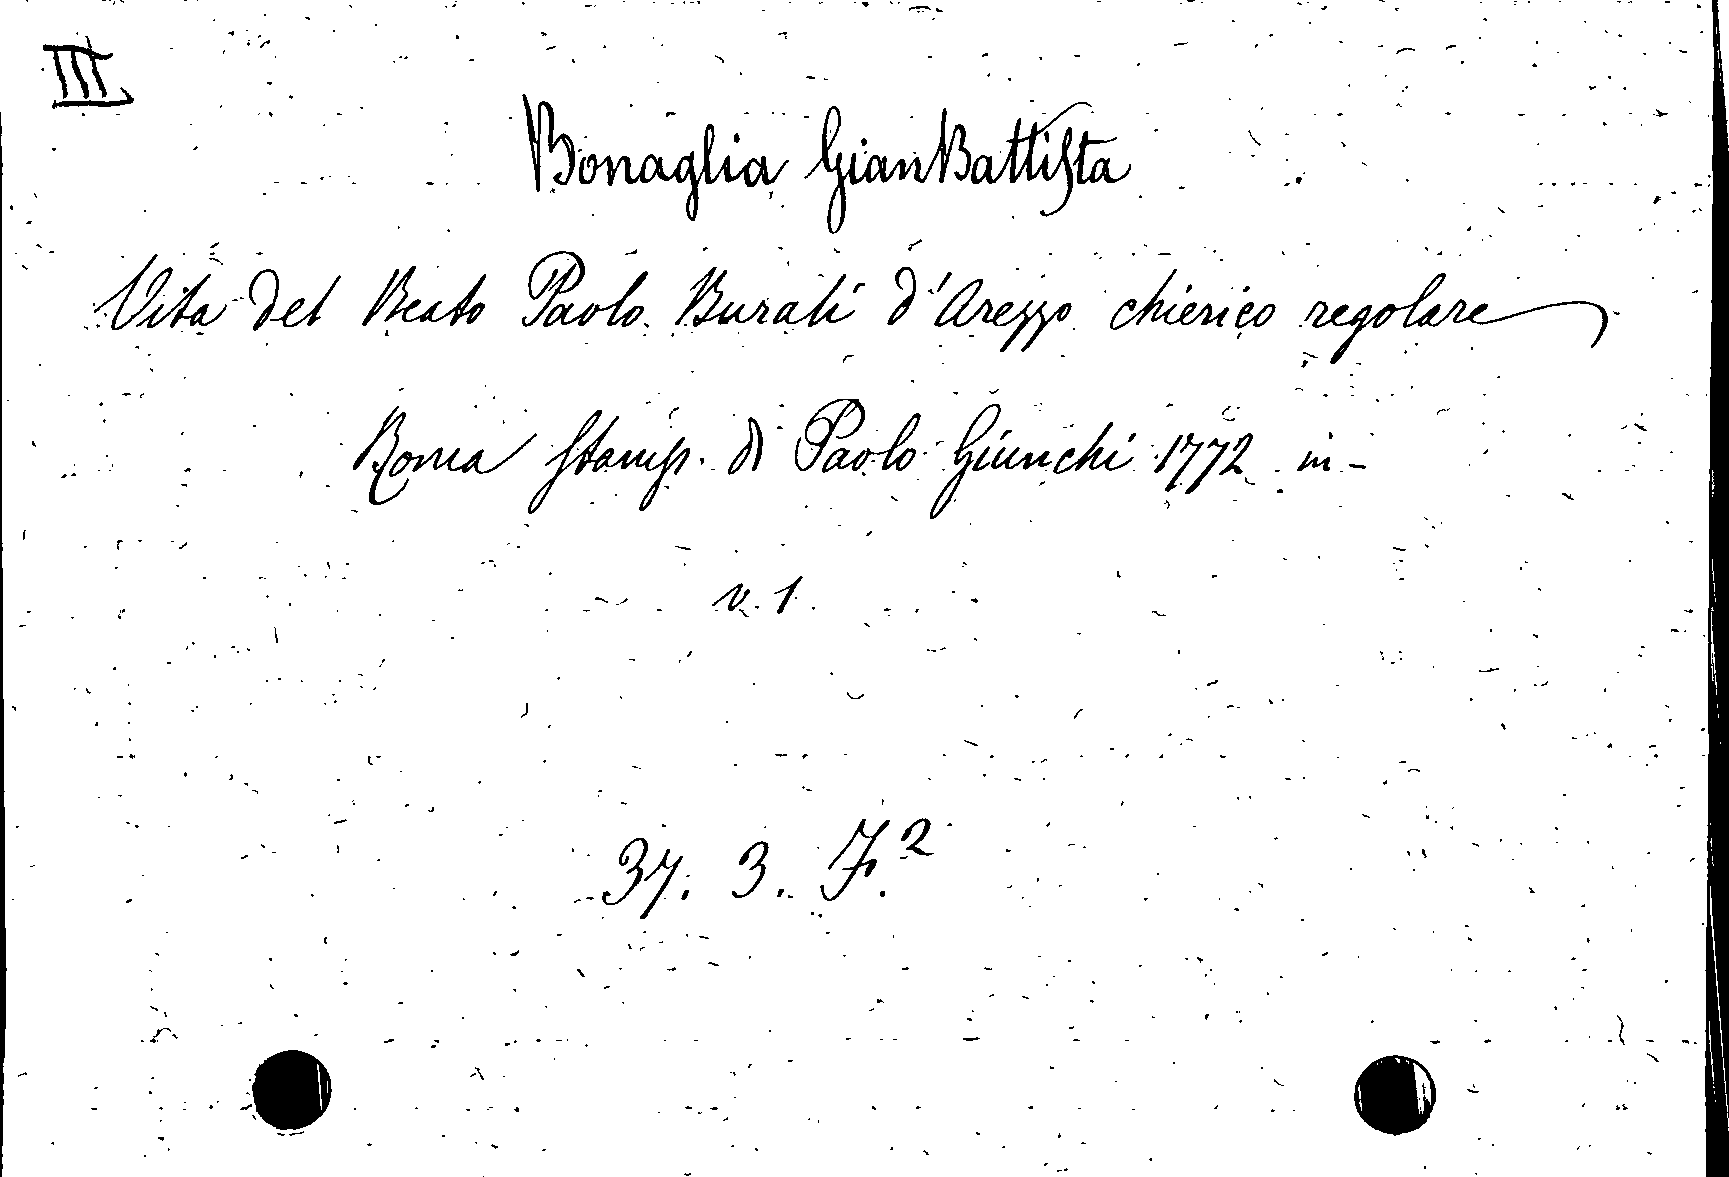 III
Bonaglia Gian Battista
Vita del Beato Paolo Burali d'Arezzo chierico regolare
Roma Stamp. di Paolo Giunchi 1772 in-
v. 1.
37. 3. F.2